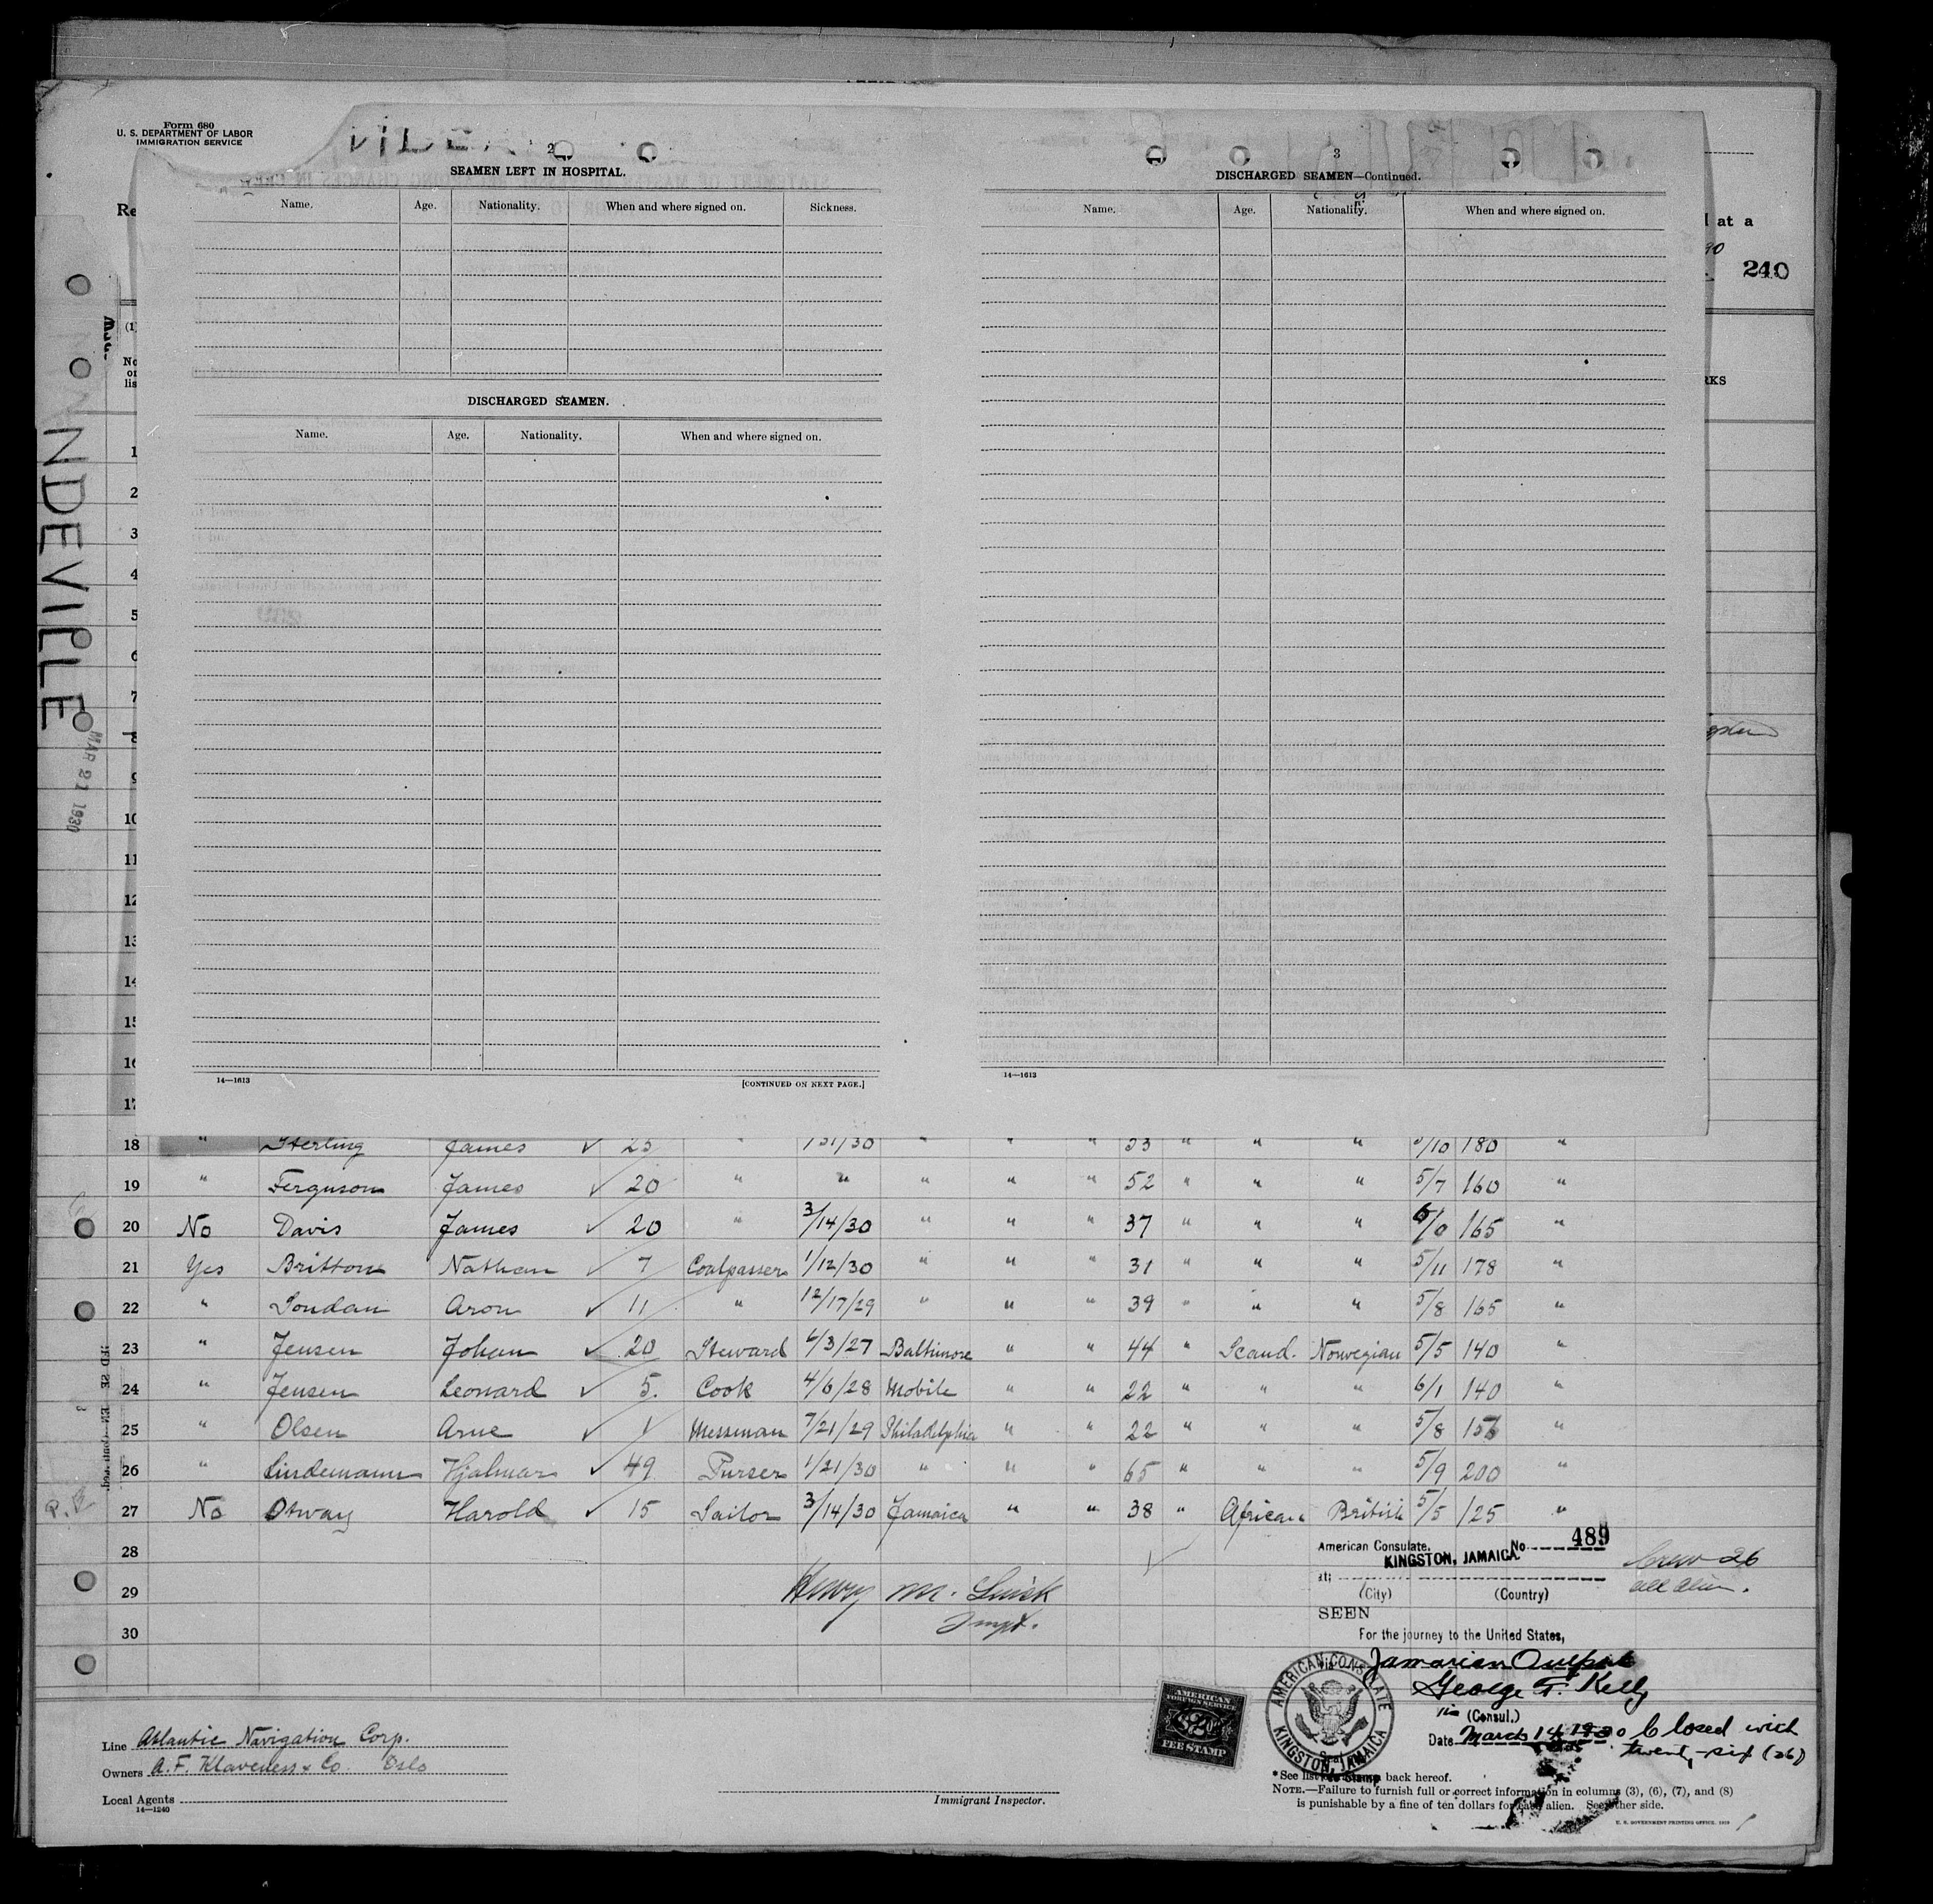 Form 680
U. S. DEPARTMENT OF LABOR
IMMIGRATION SERVICE
Re
l at a
240
RKS
NDEVILLE
MAR 21 1930
2
SEAMEN LEFT IN HOSPITAL.
Name. Age. Nationality. When and where signed on. Sickness.
DISCHARGED SEAMEN.
Name. Age. Nationality. When and where signed on.
14—1613 [CONTINUED ON NEXT PAGE.]
3
DISCHARGED SEAMEN—Continued.
Name. Age. Nationality. When and where signed on.
14—1613
(1)
No
on
lis
1
2
3
4
5
6
7
8
9
10
11
12
13
14
15
16
17
18 " Sterling James ✓ 25 " 1/31/30 " " " 33 " " " 5/10 180 "
19 " Ferguson James ✓ 20 " " " " " 52 " " " 5/7 160 "
20 No Davis James ✓ 20 " 3/14/30 " " " 37 " " " 6/0 165 "
21 Yes Britton Nathan ✓ 7 Coalpasser 1/12/30 " " " 31 " " " 5/11 178 "
22 " Loudan Aron ✓ 11 " 12/17/29 " " " 39 " " " 5/8 165 "
23 " Jensen Johan ✓ 20 Steward 6/3/27 Baltimore " " 44 " Scand. Norwegian 5/5 140 "
24 " Jensen Leonard ✓ 5. Cook 4/6/28 Mobile " " 22 " " " 6/1 140 "
25 " Olsen Arne ✓ 1 Messman 7/21/29 Philadelphia " " 22 " " " 5/8 156 "
26 " Lindemann Hjalmar ✓ 49 Purser 1/21/30 " " " 65 " " " 5/9 200 "
27 No Otway Harold ✓ 15 Sailor 3/14/30 Jamaica " " 38 " African British 5/5 125 "
28
29
30
Henry M.
Inspt.
American Consulate. No 489
KINGSTON, JAMAICA.
at
(City) (Country)
SEEN
For the journey to the United States,
George T. Kelly
(Consul.)
Date March 14 1930 Closed with
twenty-six (26)
Crew 26
all alien.
AMERICAN CONSULATE
KINGSTON, JAMAICA
AMERICAN
FOREIGN SERVICE
$2
FEE STAMP
Line Atlantic Navigation Corp.
Owners A. F. Klaveness & Co. Oslo
Local Agents
14—1240
Immigrant Inspector.
*See list back hereof.
NOTE.—Failure to furnish full or correct information in columns (3), (6), (7), and (8)
is punishable by a fine of ten dollars for each alien. See other side.
U. S. GOVERNMENT PRINTING OFFICE: 1929